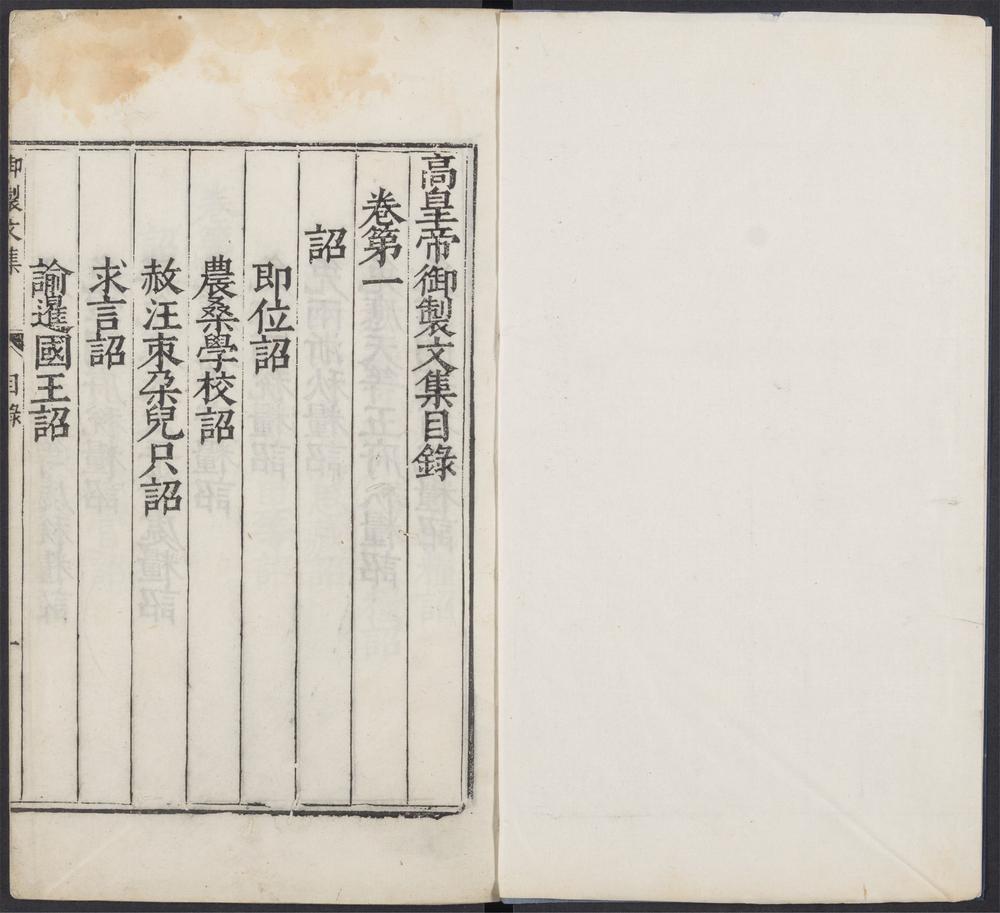 高皇帝御製文集目錄
卷第一
詔
即位詔
農桑學校詔
赦汪束朶兒只詔
求言詔
諭暹國王詔
御製文集
目錄
一